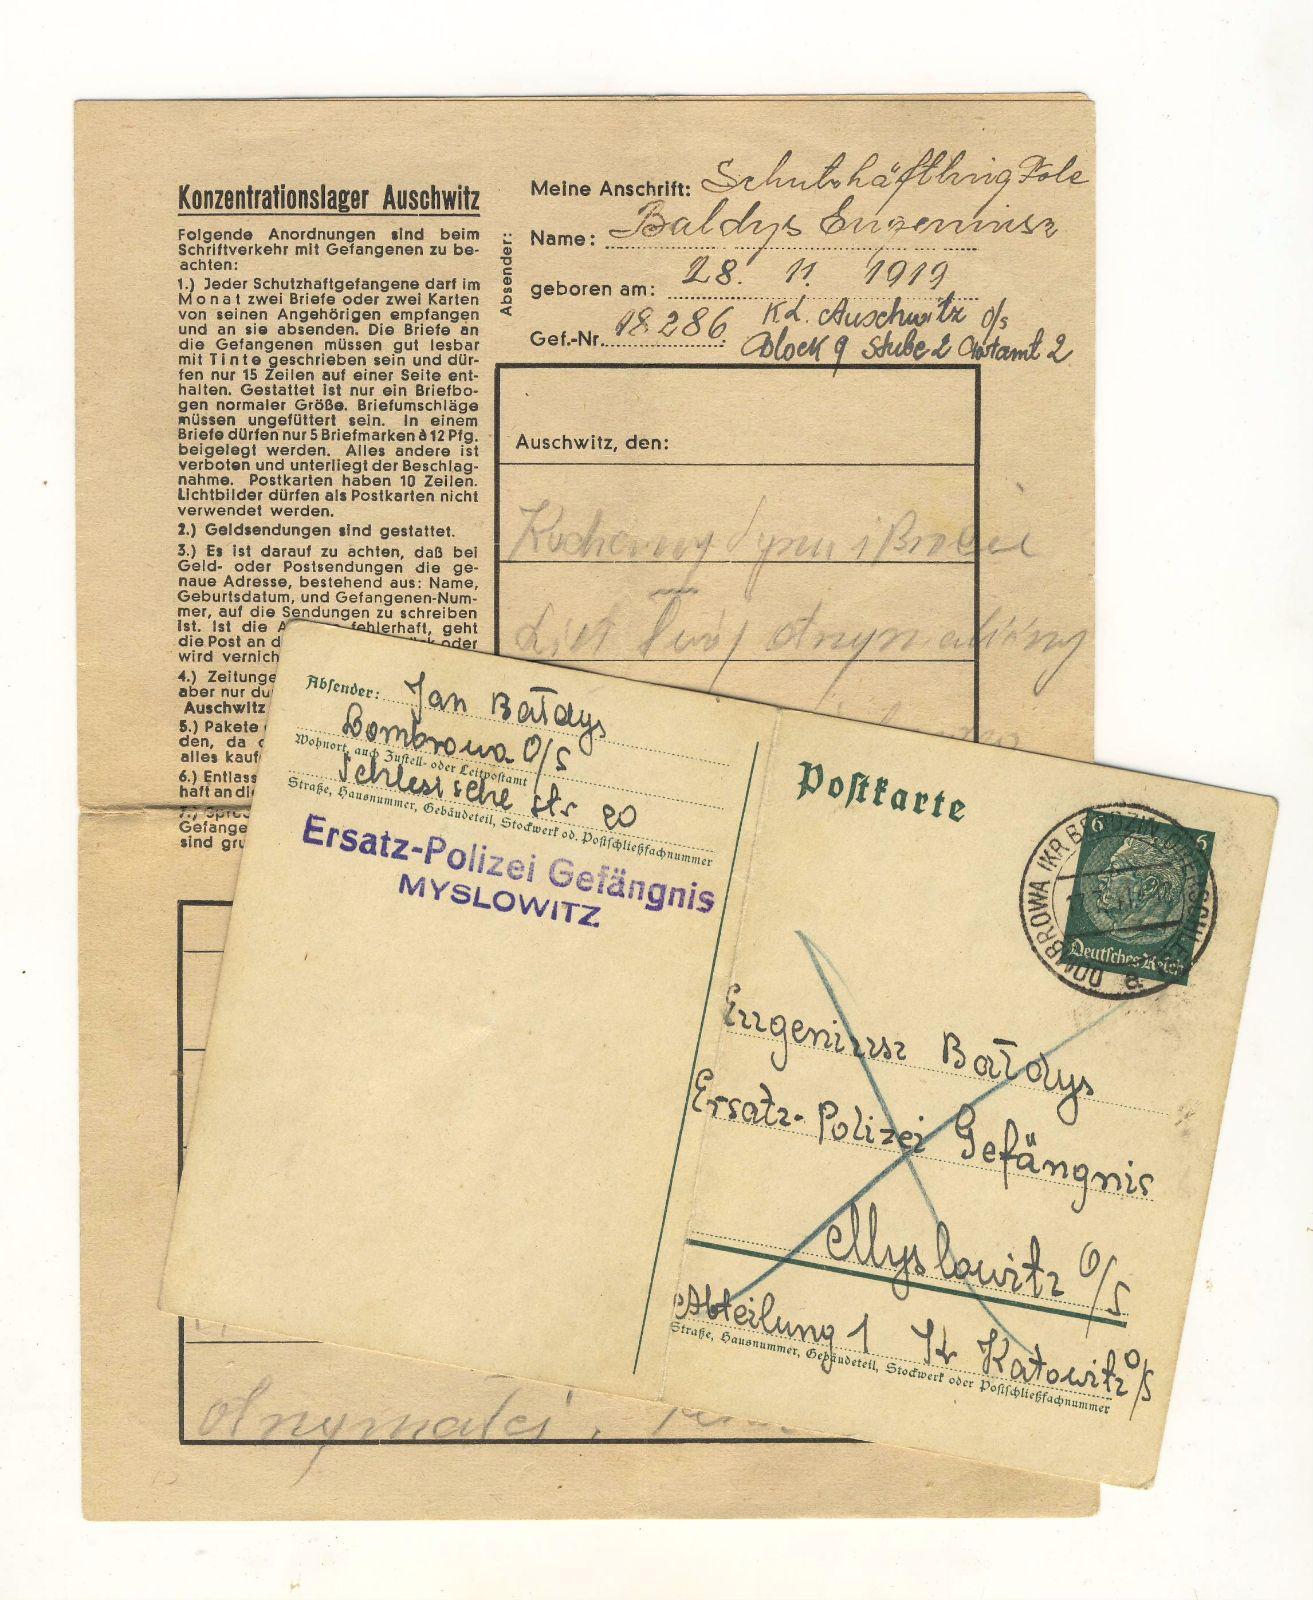 Konzentrationslager Auschwitz
Folgende Anordnungen sind beim
Schriftverkehr mit Gefangenen zu be-
achten:
1.) Jeder Schutzhaftgefangene darf im
Monat zwei Briefe oder zwei Karten
von seinen Angehörigen empfangen
und an sie absenden. Die Briefe an
die Gefangenen müssen gut lesbar
mit Tinte geschrieben sein und dür-
fen nur 15 Zeilen auf einer Seite ent-
halten. Gestattet ist nur ein Briefbo-
gen normaler Größe. Briefumschläge
müssen ungefüttert sein. In einem
Briefe dürfen nur 5 Briefmarken à 12 Pfg.
beigelegt werden. Alles andere ist
verboten und unterliegt der Beschlag-
nahme. Postkarten haben 10 Zeilen.
Lichtbilder dürfen als Postkarten nicht
verwendet werden.
2.) Geldsendungen sind gestattet.
3.) Es ist darauf zu achten, daß bei
Geld- oder Postsendungen die ge-
naue Adresse, bestehend aus: Name,
Geburtsdatum, und Gefangenen-Num-
mer, auf die Sendungen zu schreiben
ist. Ist die A fehlerhaft, geht
die Post an d ck oder
wird vernich
4.) Zeitunge
aber nur du
Auschwitz
5.) Pakete
den, da
alles kauf
6.) Entlass
haft an di
7.) Sprec
Gefange
sind gru
Absender:
Meine Anschrift: Schutzhäftling Pole
Name: Baldys Eugeniusz
geboren am: 28. 11. 1919
Gef.-Nr. 18286 KL. Auschwitz O/S
Block 9 Stube 2 Postamt 2
Auschwitz, den:
Kochany Synu i Bracie
List Twój otrzymaliśmy
otrzymałeś
Absender: Jan Bałdys
Dombrowa O/S
Wohnort, auch Zustell- oder Leitpostamt
Schlesische str 20
Straße, Hausnummer, Gebäudeteil, Stockwerk od. Postschließfachnummer
Ersatz-Polizei Gefängnis
MYSLOWITZ
Postkarte
6 6
Deutsches Reich
DOMBROWA (KR BENDZIN, OBERSCHLES)
a
Eugeniusz Bałdys
Ersatz-Polizei Gefängnis
Myslowitz O/S
Abteilung 1 Kr Katowitz O/S
Straße, Hausnummer, Gebäudeteil, Stockwerk oder Postschließfachnummer